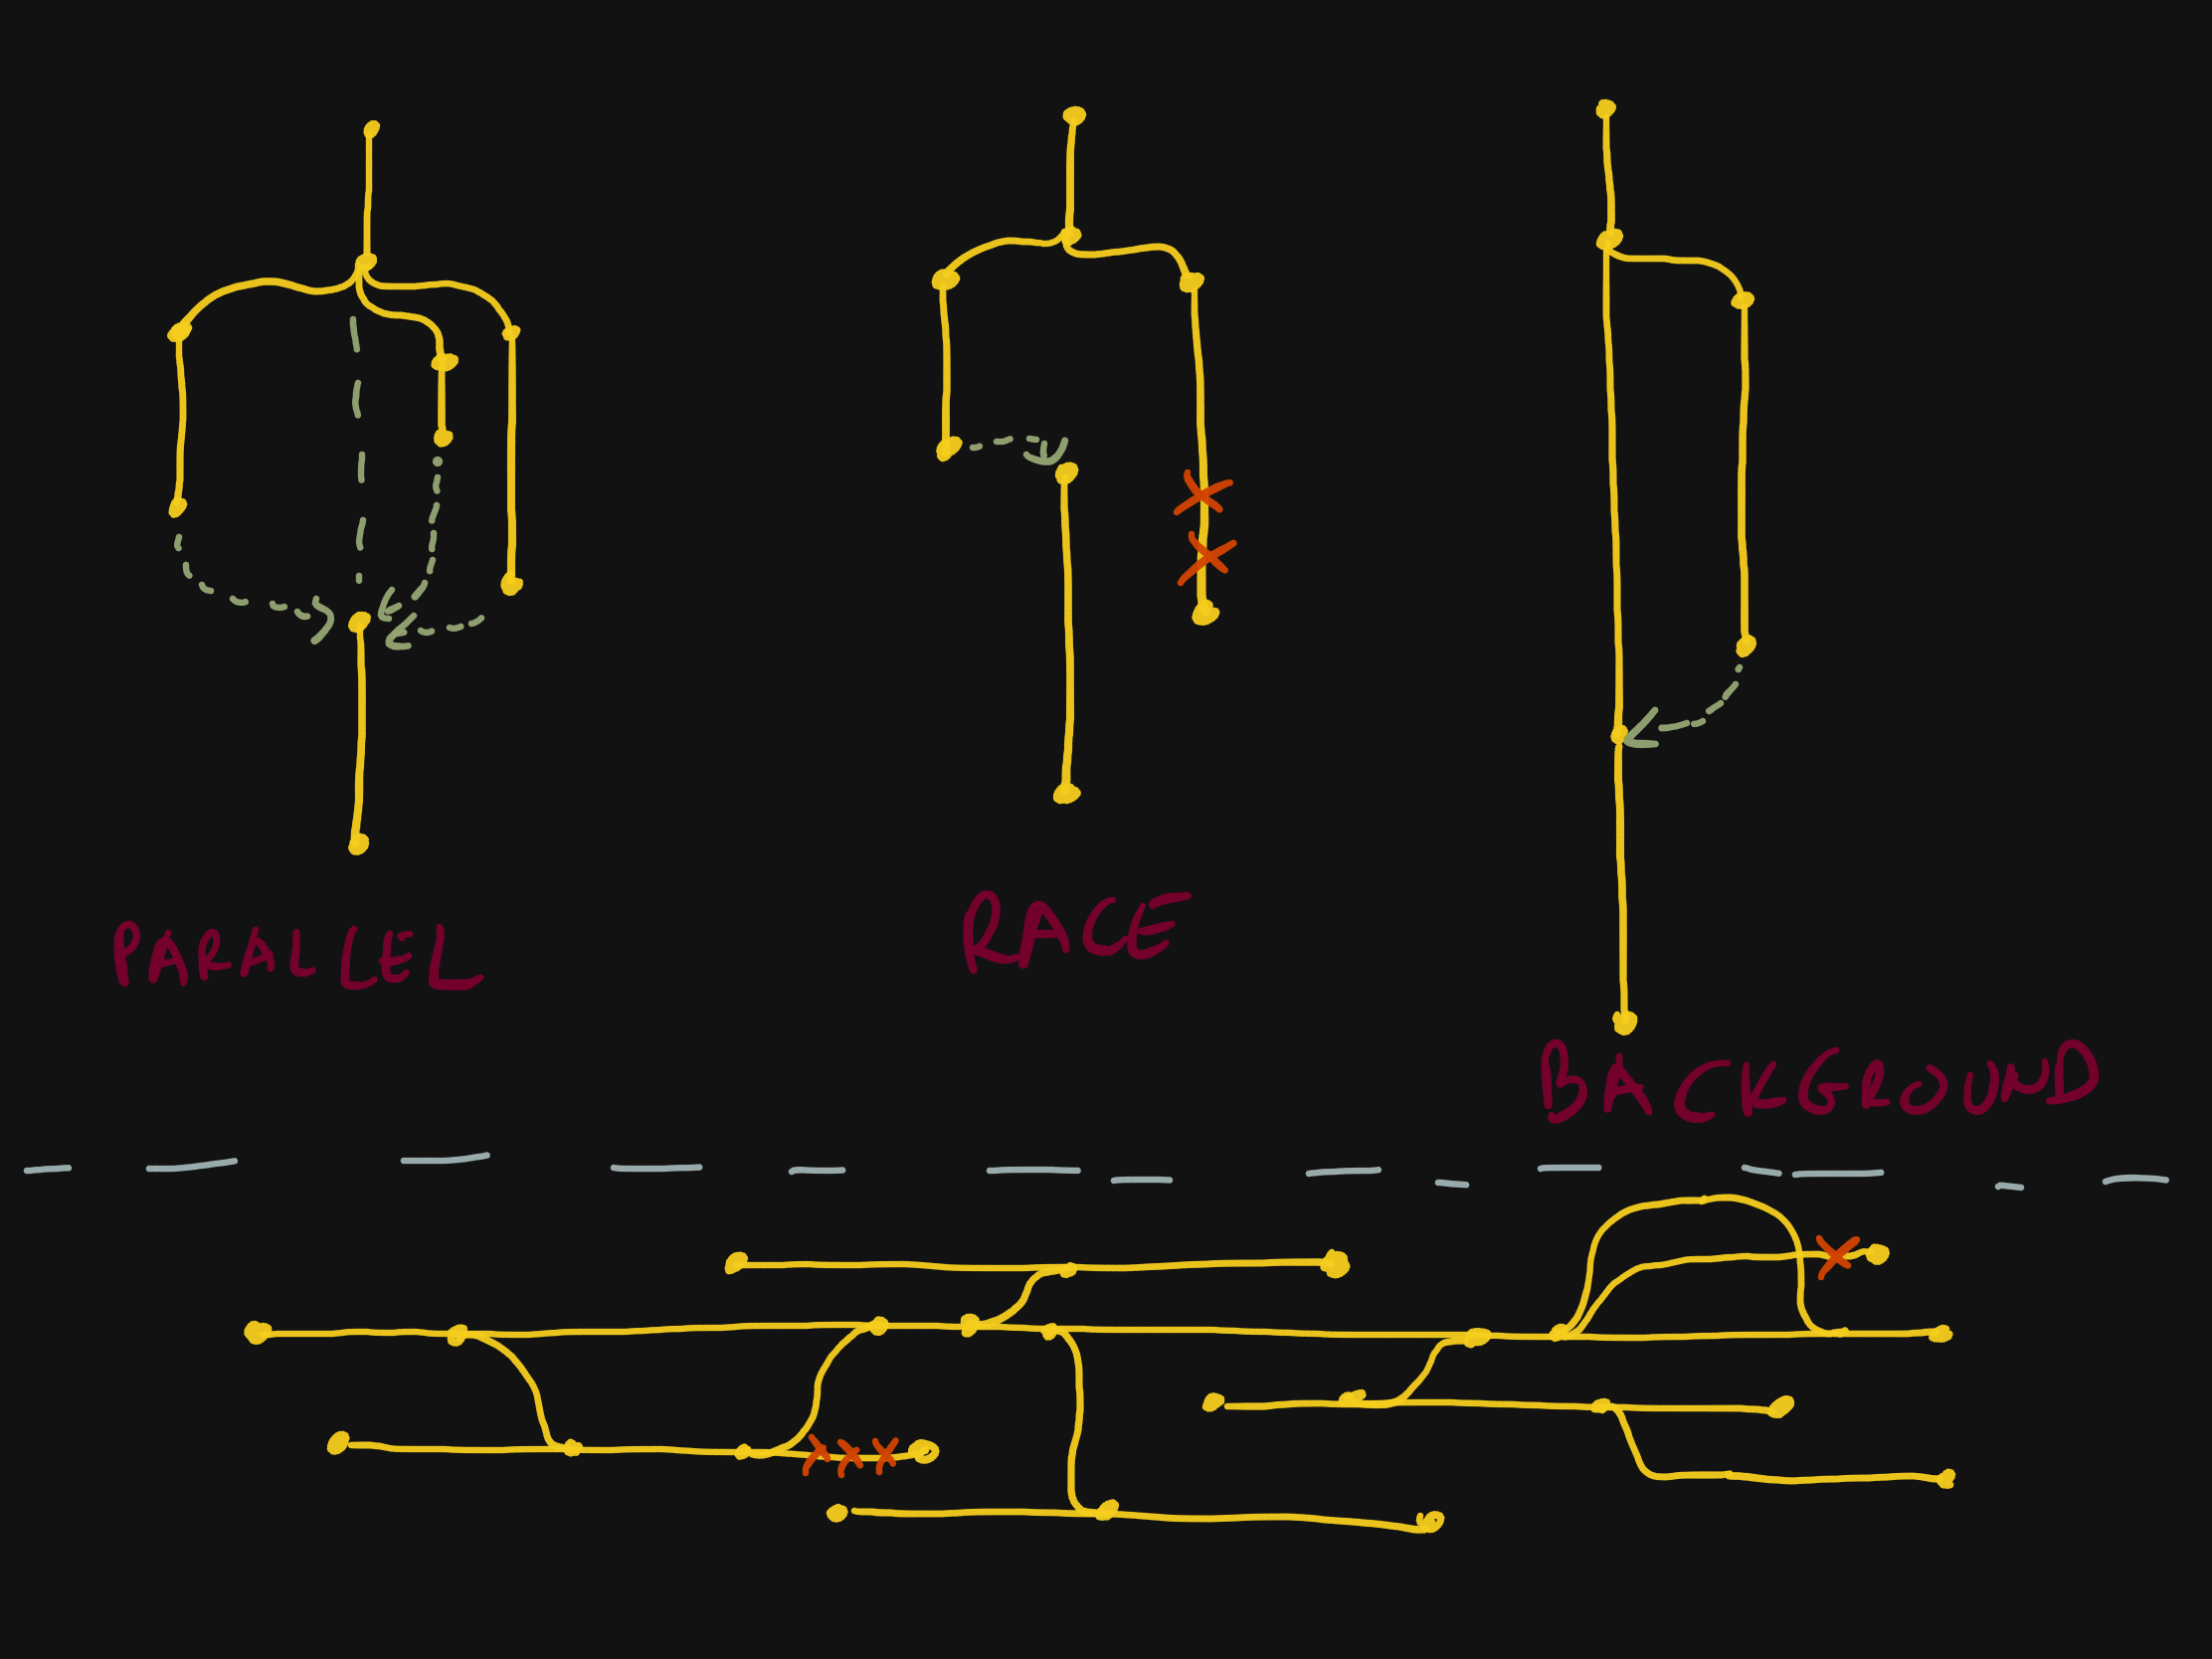 PARALLEL
RACE
BACKGROUND